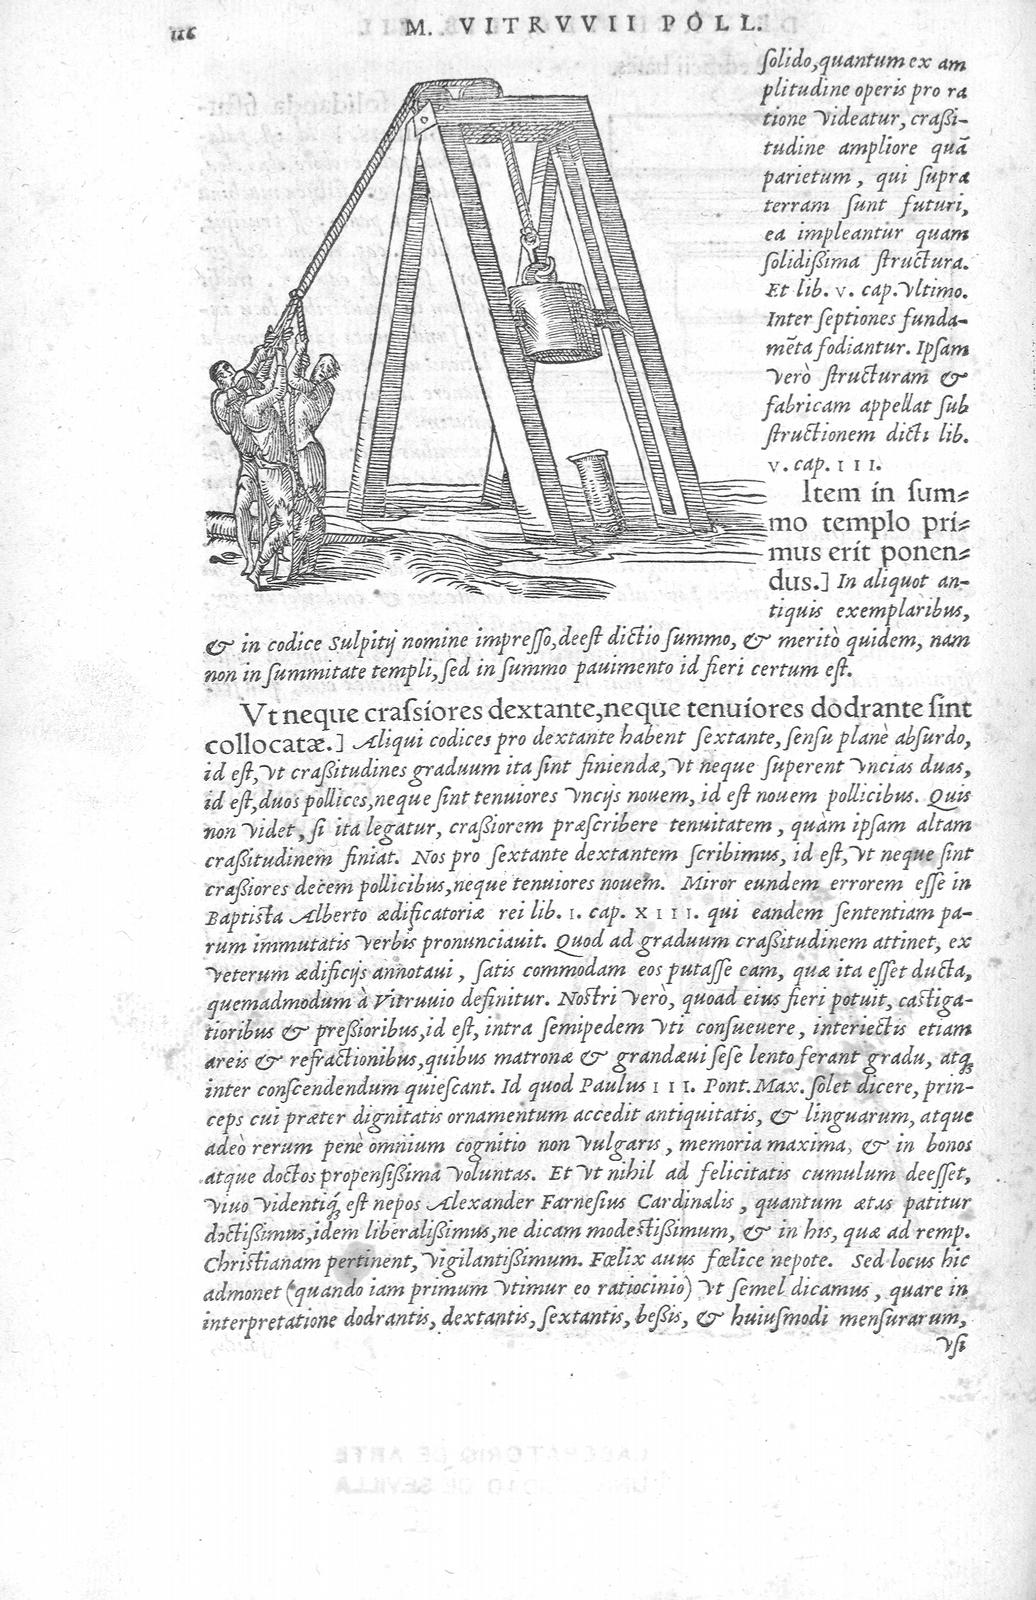 116
M. VITRVVII POLL.
ſolido,quantum ex am
plitudine operis pro ra
tione videatur, craßi-
tudine ampliore quā
parietum, qui ſupra
terram ſunt futuri,
ea impleantur quam
ſolidißima ſtructura.
Et lib. v. cap. vltimo.
Inter ſeptiones funda-
mēta fodiantur. Ipſam
verò ſtructuram &
fabricam appellat ſub
ſtructionem dicti lib.
v. cap. III.
Item in ſum-
mo templo pri-
mus erit ponen-
dus.] In aliquot an-
tiquis exemplaribus,
& in codice Sulpitij nomine impreſſo,deeſt dictio ſummo, & meritò quidem, nam
non in ſummitate templi, ſed in ſummo pauimento id fieri certum eſt.
Vt neque craſsiores dextante,neque tenuiores dodrante ſint
collocatæ.] Aliqui codices pro dextante habent ſextante, ſenſu planè abſurdo,
id eſt, vt craßitudines graduum ita ſint finiendæ, vt neque ſuperent vncias duas,
id eſt,duos pollices,neque ſint tenuiores vncijs nouem, id eſt nouem pollicibus. Quis
non videt, ſi ita legatur, craßiorem præſcribere tenuitatem, quàm ipſam altam
craßitudinem finiat. Nos pro ſextante dextantem ſcribimus, id eſt, vt neque ſint
craßiores decem pollicibus,neque tenuiores nouem. Miror eundem errorem eſſe in
Baptiſta Alberto ædificatoriæ rei lib. I. cap. XIII. qui eandem ſententiam pa-
rum immutatis verbis pronunciauit. Quod ad graduum craßitudinem attinet, ex
veterum ædificijs annotaui, ſatis commodam eos putaſſe eam, quæ ita eſſet ducta,
quemadmodum à Vitruuio definitur. Noſtri verò, quoad eius fieri potuit, caſtiga-
tioribus & preßioribus,id eſt, intra ſemipedem vti conſueuere, interiectis etiam
areis & refractionibus,quibus matronæ & grandæui ſeſe lento ferant gradu, atq;
inter conſcendendum quieſcant. Id quod Paulus III. Pont. Max. ſolet dicere, prin-
ceps cui præter dignitatis ornamentum accedit antiquitatis, & linguarum, atque
adeò rerum penè omnium cognitio non vulgaris, memoria maxima, & in bonos
atque doctos propenſißima voluntas. Et vt nihil ad felicitatis cumulum deeſſet,
viuo videntiq; eſt nepos Alexander Farneſius Cardinalis, quantum ætas patitur
doctißimus,idem liberalißimus,ne dicam modeſtißimum, & in his, quæ ad remp.
Chriſtianam pertinent, vigilantißimum. Fœlix auus fœlice nepote. Sed locus hic
admonet (quando iam primum vtimur eo ratiocinio) vt ſemel dicamus, quare in
interpretatione dodrantis, dextantis, ſextantis, beßis, & huiuſmodi menſurarum,
vſi